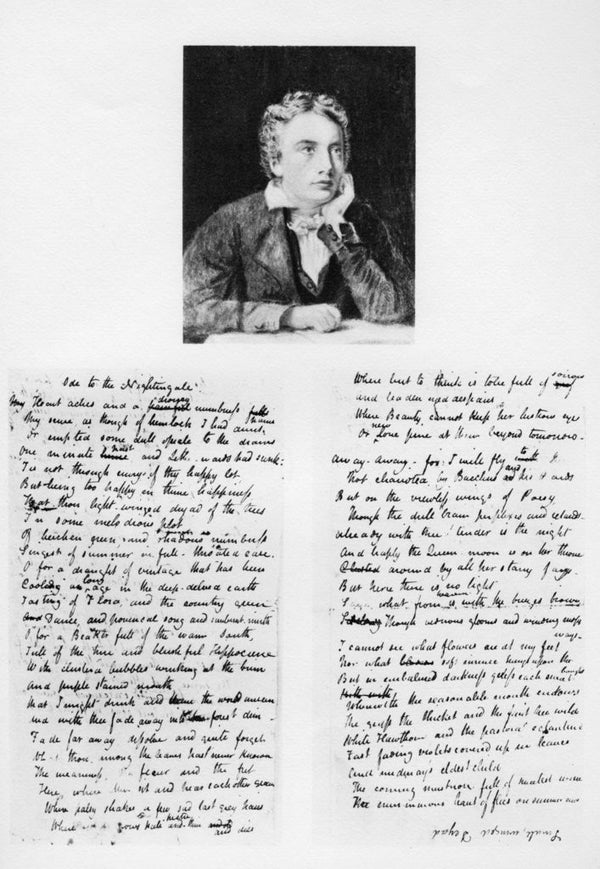 Ode to the Nightingale.
drowsy
My Heart aches and a painful numbness falls
My sense as though of hemlock I had
Or emptied some dull opiate to the drains
past
One minute hence and Lethe wards had sunk.
Tis not through envy of thy happy lot
But being too happy in thine happiness
That thou light-winged dryad of the trees
In some melodious plot
Of beechen green, and shadows numberless
Singest of summer in full-throated ease.
O for a draught of vintage that has been
long
Cooling an age in the deep-delved earth
Tasting of Flora, and the country green
And Dance, and provencal song and sunburnt mirth
O for a Beaker full of the warm South,
Full of the true and blushful Hippocrene
With cluster'd bubbles winking at the brim
And purple stained mouth
That I might drink and leave the world unseen
And with thee fade away into forest dim-
Fade far away dissolve and quite forget
What thou among the leaves hast never known
The weariness, the fever and the fret
Here, where Men sit and hear each other groan
Where palsy shakes a few sad last grey hairs
Where youth grows pale and thin and old and dies
Where but to think is to be full of sorrow
and leaden eyed despairs
Where Beauty cannot keep her lustrous eyes
new
Or Love pine at them beyond tomorrow-
Away-away-for I will fly to thee
Not charioted by Bacchus and his Pards
But on the viewless wings of Poesy
Though the dull brain perplexes and retards-
Already with thee! tender is the night
And haply the Queen moon is on her throne
Clustered around by all her starry fays-
But here there is no light
Save what from heaven is with the breezes blown
Through verdurous glooms and winding mossy ways-
I cannot see what flowers are at my feet
Nor what soft incense hangs upon the boughs
But in embalmed darkness guess each sweet
With with
Wherewith the seasonable month endows
The grass the thicket and the fruit tree wild
White Hawthorn and the pastoral eglantine
Fast fading violets covered up in leaves
And midmay's eldest child
The coming muskrose full of
The murmurous haunt of flies on summer eves
Small, winged Dryad